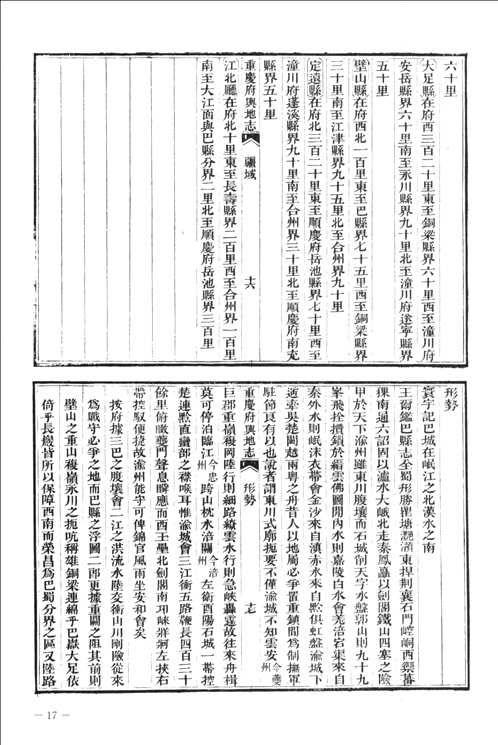 六十里
大足縣在府西三百二十里東至銅梁縣界六十里西至潼川府
安岳縣界六十里南至永川縣界九十里北至潼川府遂寧縣界
五十里
璧山縣在府西北一百里東至巴縣界七十五里西至銅梁縣界
三十里南至江津縣界九十五里北至合州界九十里
定遠縣在府北三百二十里東至順慶府岳池縣界七十里西至
潼川府蓬溪縣界九十里南至合州界三十里北至順慶府南充
縣界五十里
重慶府輿地志 疆域 十六
江北廳在府北十里東至長壽縣界二百里西至合州界一百里
南至大江面與巴縣分界二里北至順慶府岳池縣界三百里
形勢
寰宇記巴城在岷江之北漢水之南
王爾鑑巴縣志全蜀形勝瞿塘灩澦東捍荆襄石門崆峒西禦蕃
猓南通六詔固以瀘水大峨北走秦鳳嚴以劍閣鐵山四塞之險
甲於天下渝州雖東川腹壤而石城削天字水盤郭山則九十九
峯飛挫攢鎖於縉雲佛圖間內水則嘉陵白水會羌涪宕渠來自
秦外水則岷沫衣帶會金沙來自滇赤水來自黔俱虹盤渝城下
遝秦吳楚閩越兩粤之舟昔人以地屬必爭置重鎮間爲制撫軍
駐節良有以也說者謂東川式廓扼要不僅渝城不知雲安今夔州
重慶府輿地志 形勢 志
巨郡重嶺複岡陸行則細路繚雲水行則急峽轟逵故往來舟楫
莫可停泊臨江今忠州跨山枕水涪關今涪州左衛酉陽石城一帶控
楚連黔直巒部之襟喉耳惟渝城會三江衝五路鞭長四百三十
餘里俯瞰夔門聲息瞬應而西玉壘北劍閣南邛崍牂牁左挾右
帶控馭便捷故渝州能守可俾錦官風雨坐安和會矣
按府據三巴之腹壤會二江之洪流水陸交衝山川剛險從來
爲戰守必爭之地而巴縣之浮圖二郎更據重關之阻其前則
壁山之重山複嶺永川之扼吭稱雄銅梁連綿乎巴嶽大足依
倚乎長幾皆所以保障西南而榮昌爲巴蜀分界之區又陸路
— 17 —